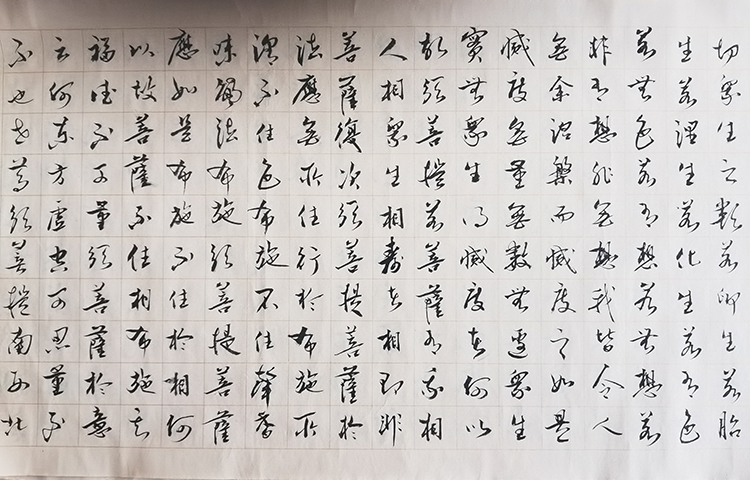 切眾生之類若卵生若胎
生若濕生若化生若有色
若無色若有想若無想若
非有想非無想我皆令入
無余涅槃而滅度之如是
滅度無量無數無邊眾生
實無眾生得滅度者何以
故須菩提若菩薩有我相
人相眾生相壽者相即非
菩薩復次須菩提菩薩於
法應無所住行於布施所
謂不住色布施不住聲香
味觸法布施須菩提菩薩
應如是布施不住於相何
以故菩薩不住相布施其
福德不可量須菩薩於意
云何東方虛空可思量不
不也世尊須菩提南西北